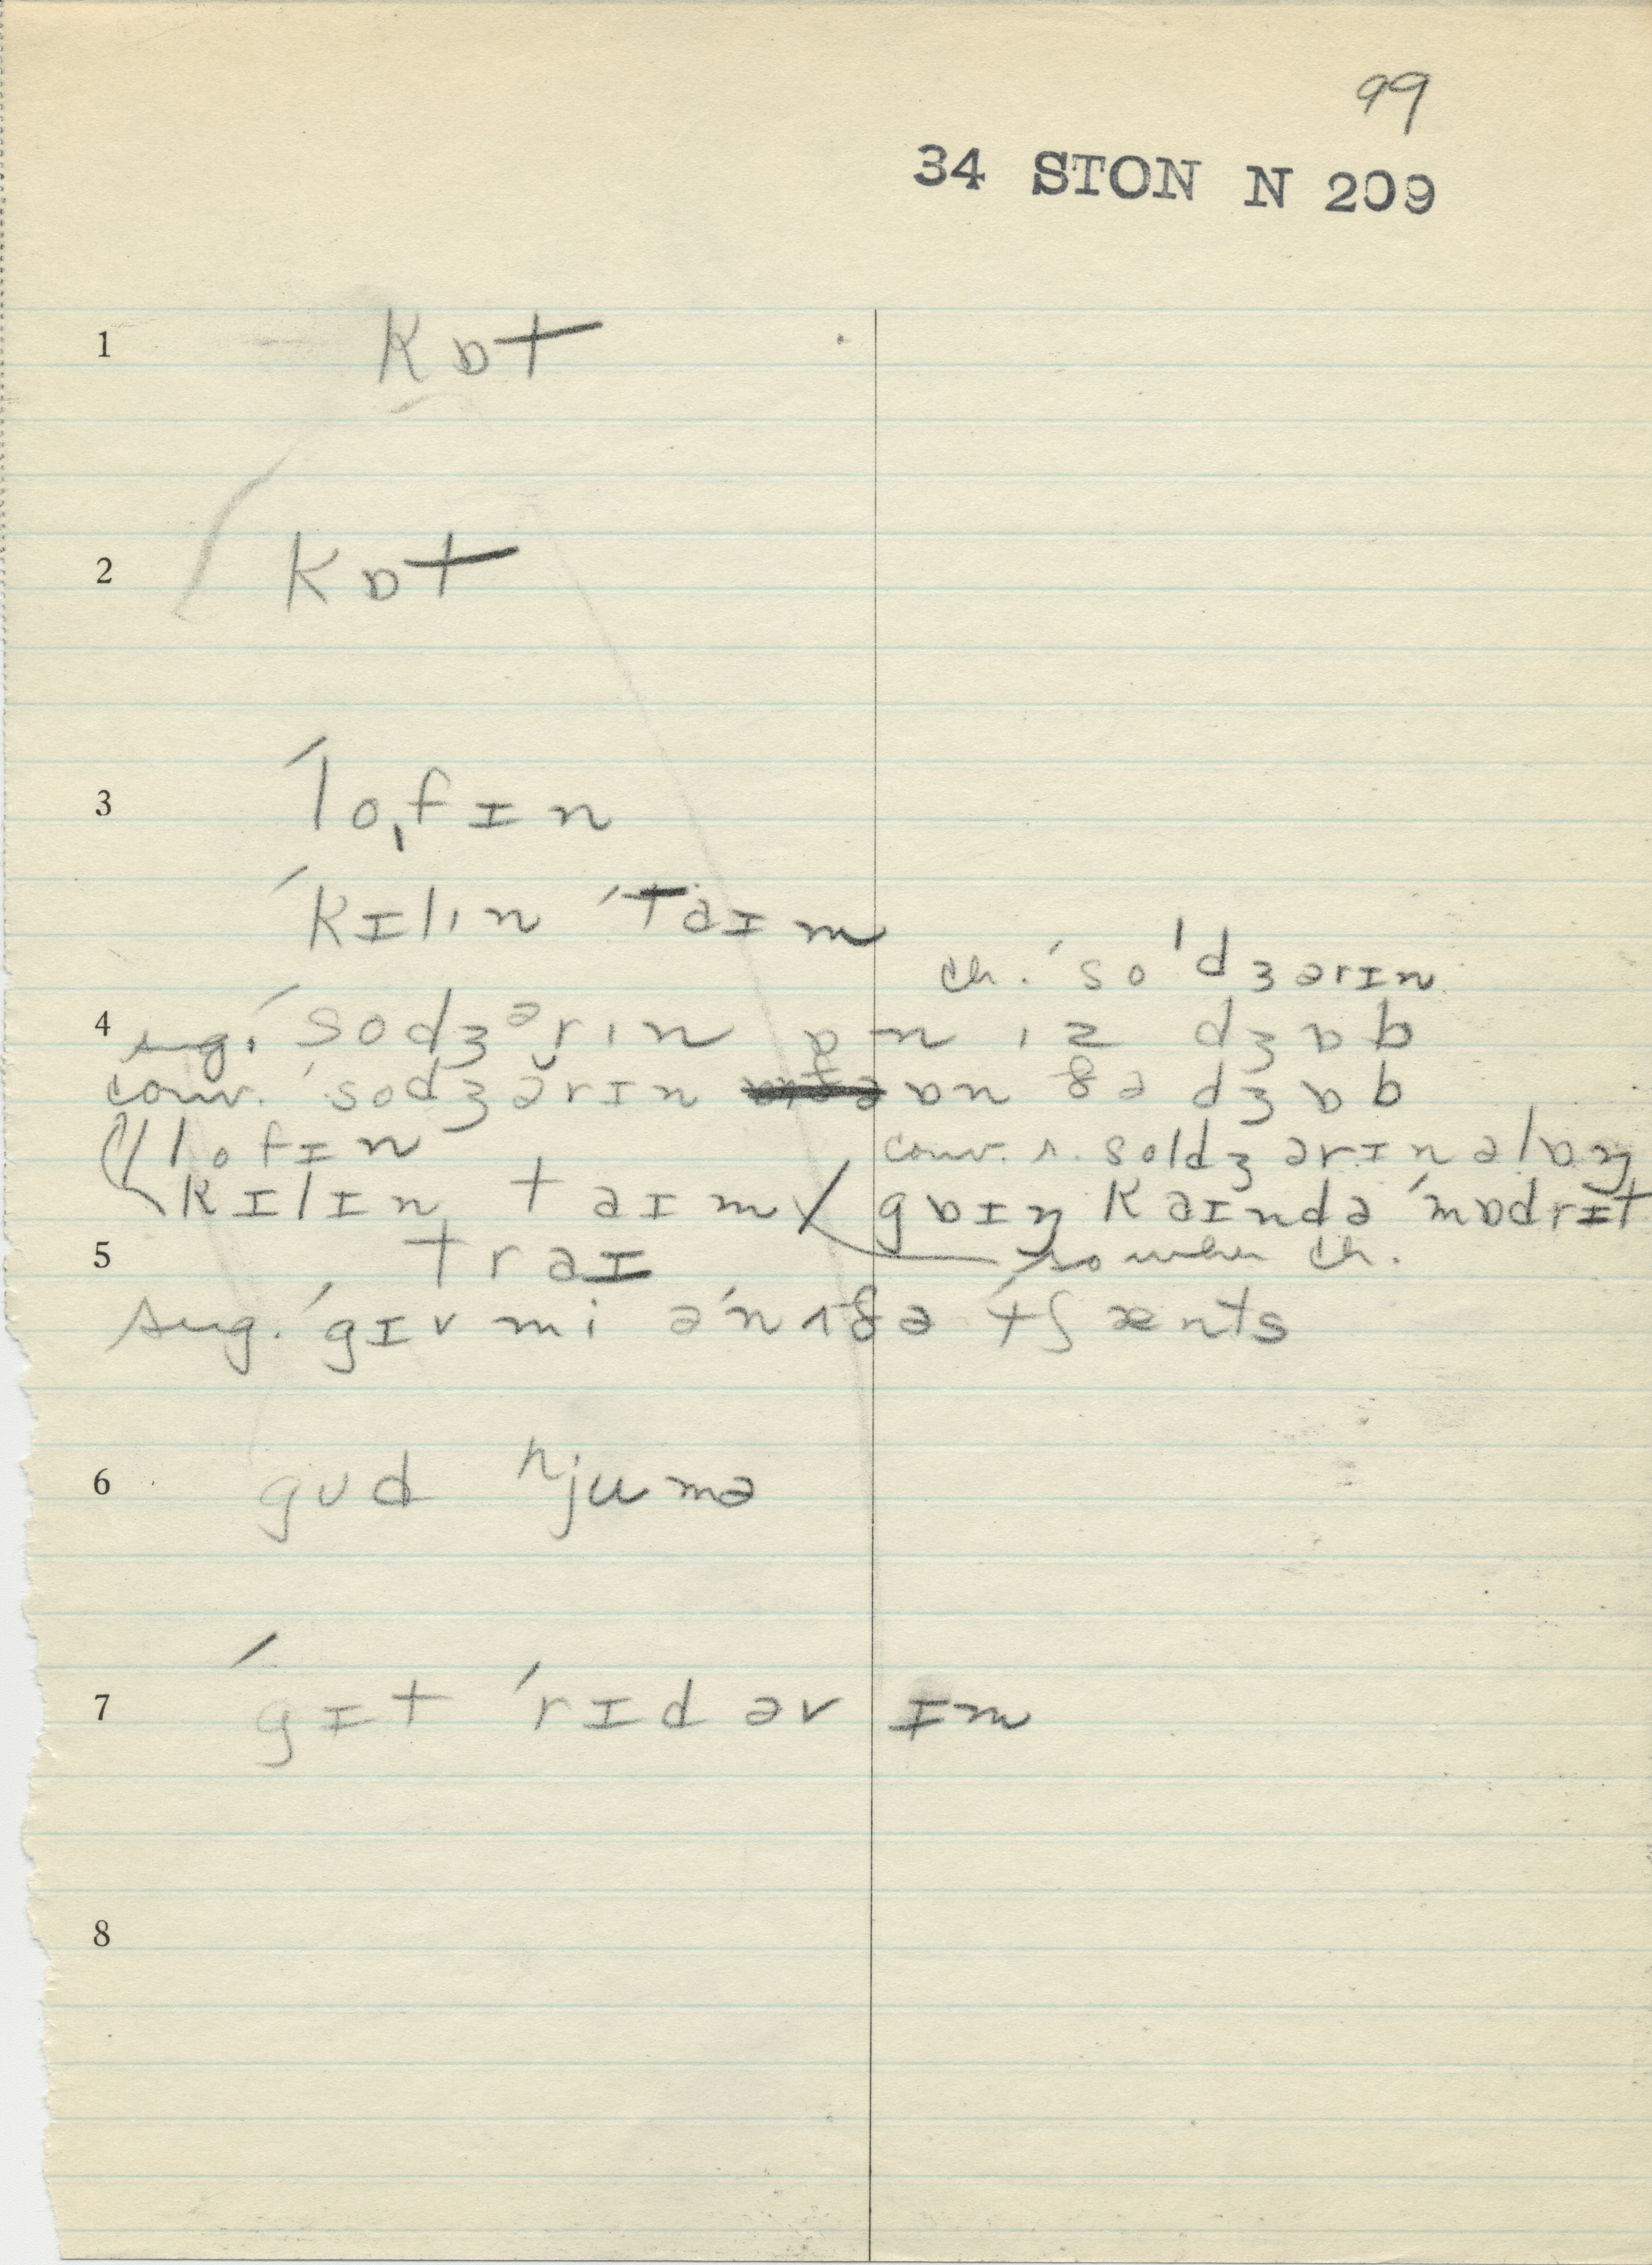 99
34 STON N 209
1 kɒt
2 kɒt
3 ˈloˌfɪn
ˈkɪlˌɪn ˈtaɪm
ch. ˈsoˡdʒərɪn
4 sug. ˈsodʒərɪn ɒn ɪz dʒɒb
conv. ˈsodʒə̆rɪn ɒn ðə dʒɒb
lofɪn
conv. r. soldʒərɪn əlɒŋ
kɪlɪn taɪm gɒɪŋ kaɪndə ˈmɒdrɪt
so when ch.
5 traɪ
sug. ˈgɪv mi əˈnʌðə ˈtʃænts
6 gʊd hjumə
7 ˈgɪt ˈrɪd əv ɪm
8